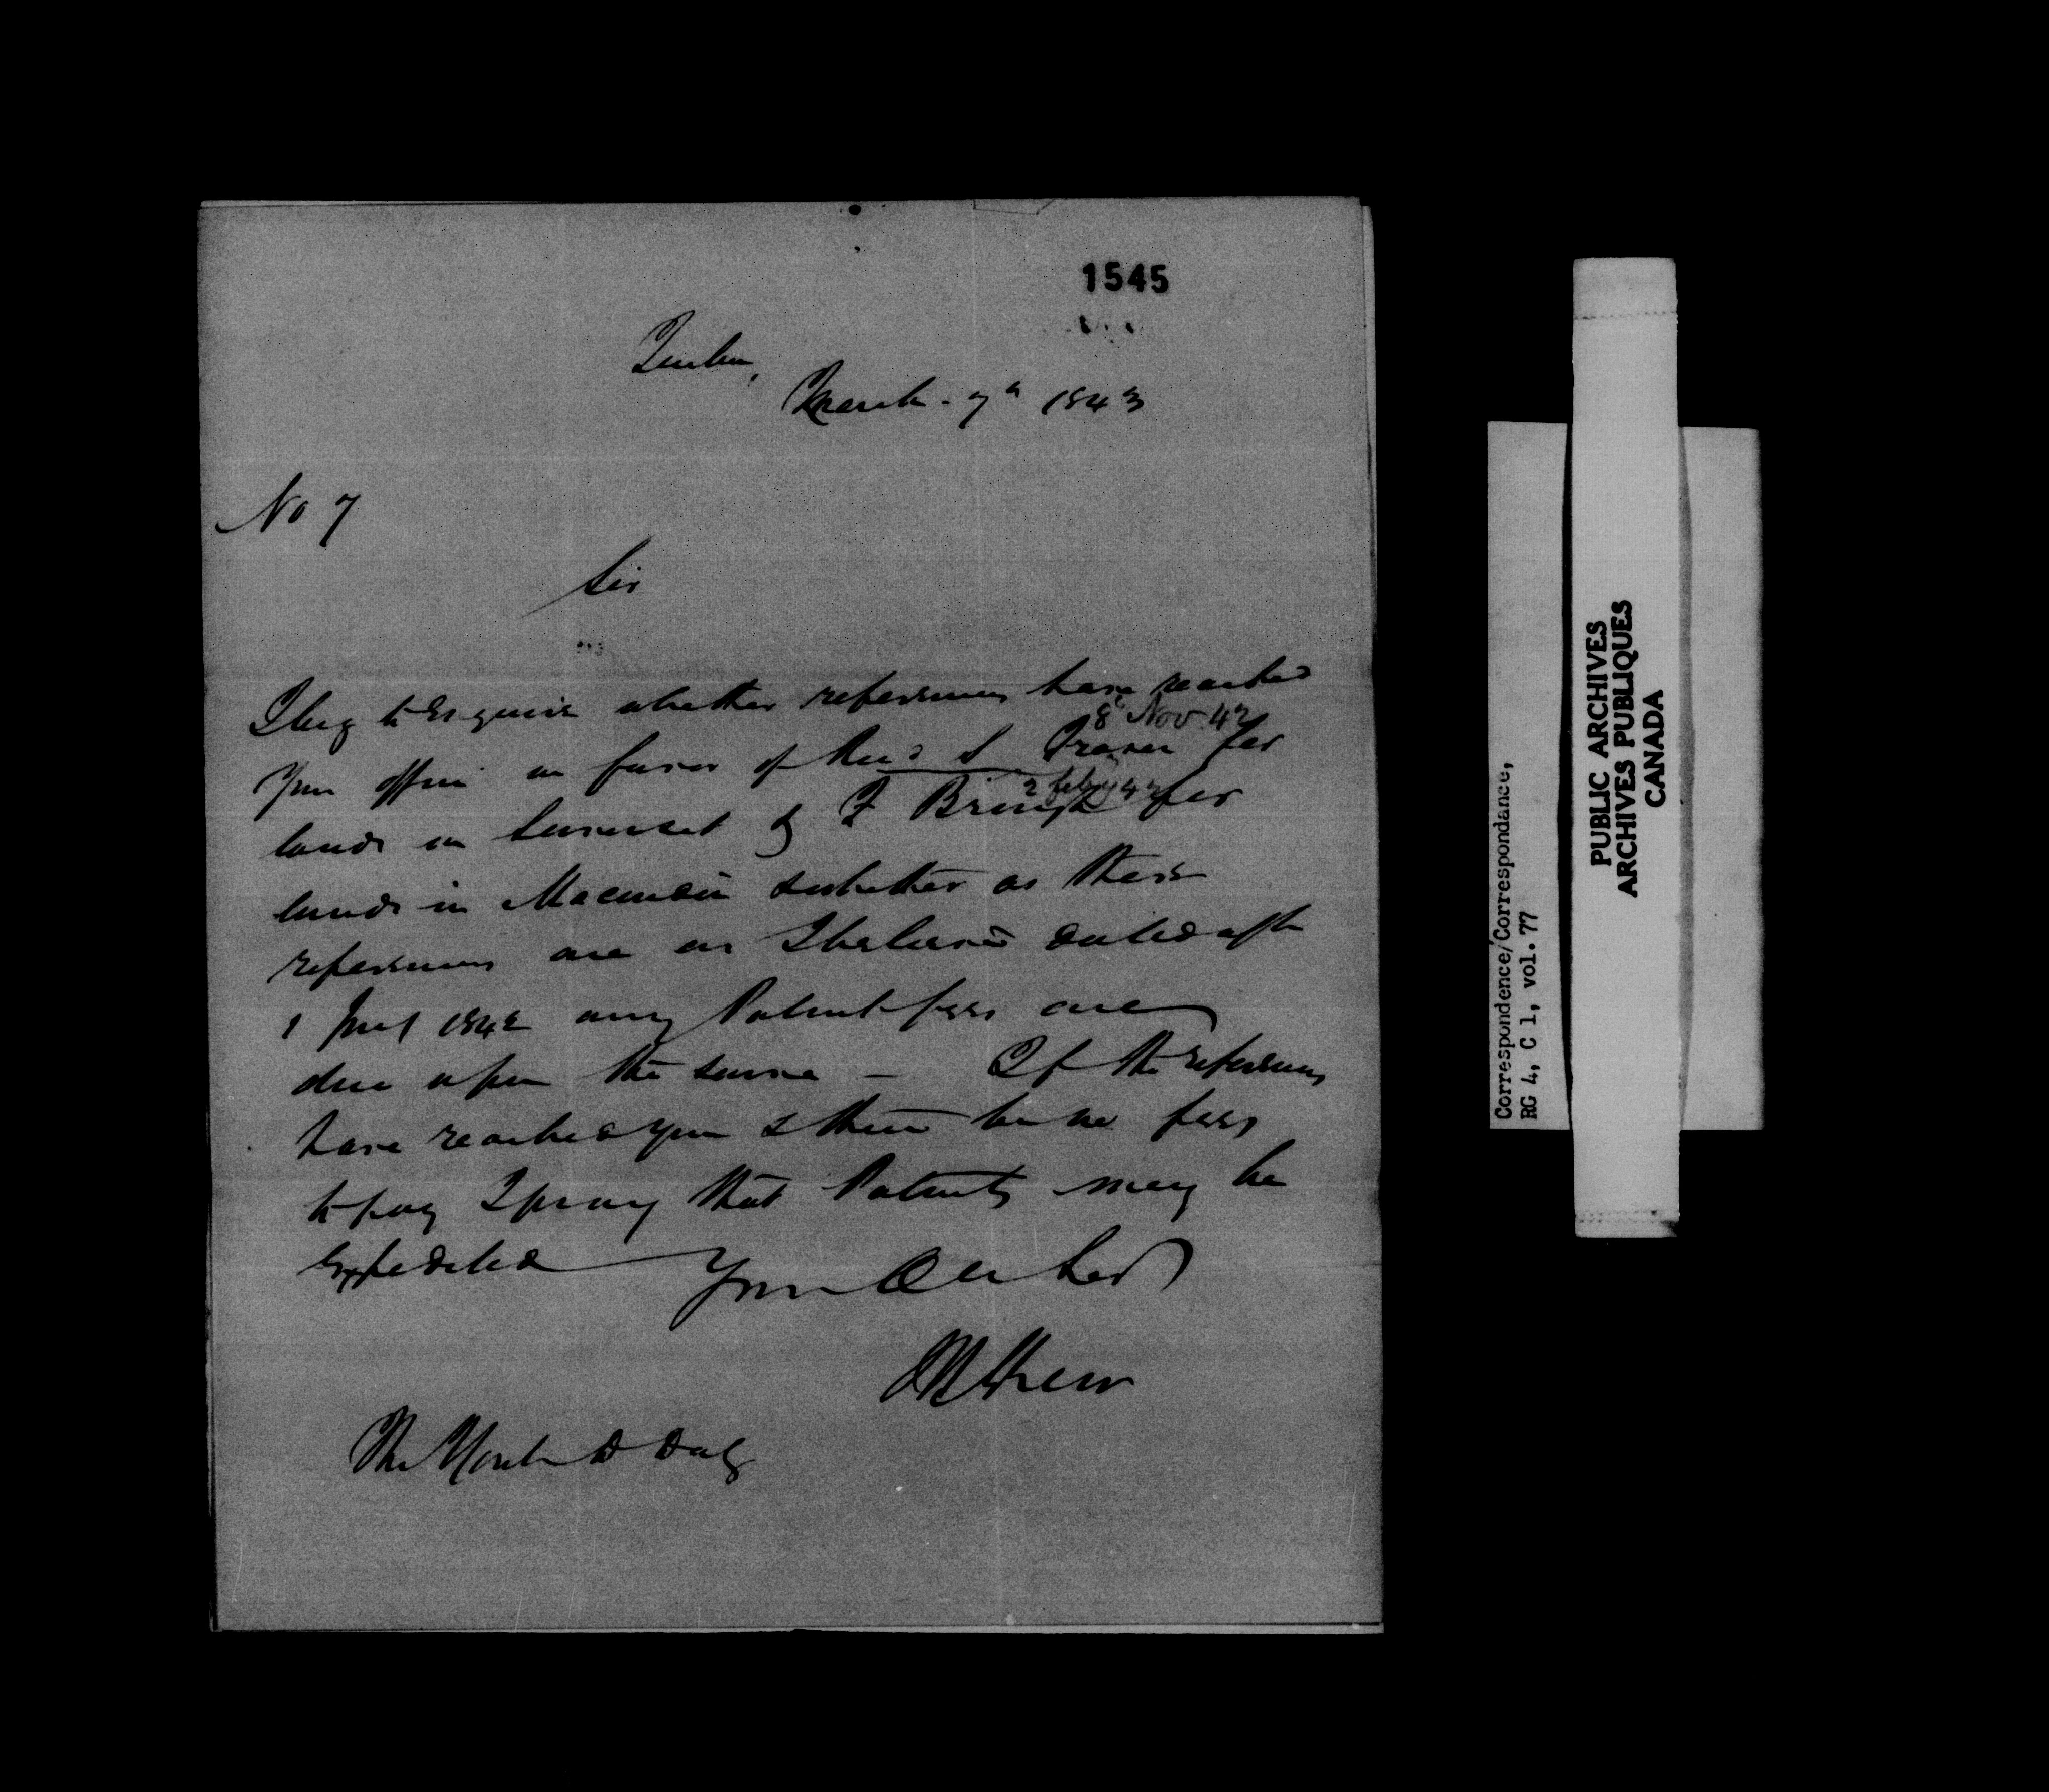 1545
Quebec,
March 7th 1843
No 7
Sir
I beg to Enquire whether references have reached
8 Nov. 42
Your office in favor of Revd S. Fraser for
2 feby 42
lands in Somerset & F Brough for
lands in Macnider & whether as these
references are as I believe dated after
1 1842 any Patent fees are
due upon the same — If the references
have reached you & there be no fees
to pay I pray that Patents may be
Expedited
Your Ob Ser
The Honble D Daly
Correspondence/Correspondance,
RG 4, C 1, vol. 77
PUBLIC ARCHIVES
ARCHIVES PUBLIQUES
CANADA